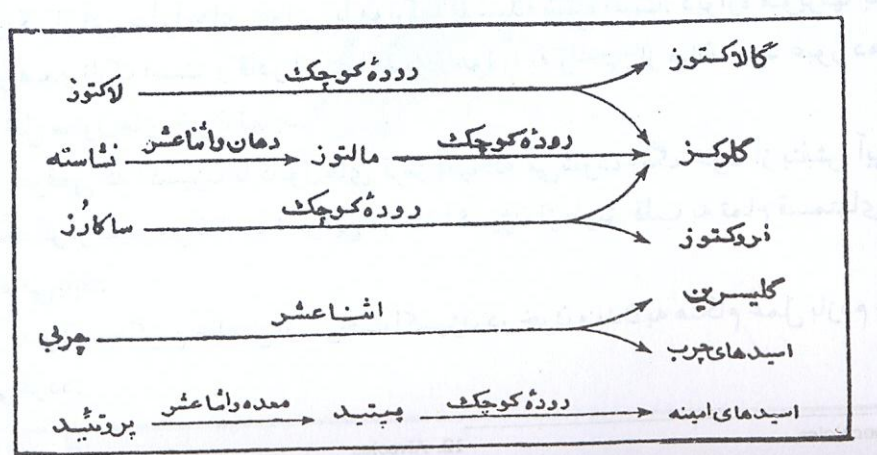 لاکتوز رودۀ کوچک گالاکتوز
نشاسته دهان واثناعشر مالتوز رودۀ کوچک گلوکز
ساکارُز رودۀ کوچک فروکتوز
چربی اثناعشر گلیسرین
اسیدهای چرب
پروتئید معده واثناعشر پپتید رودۀ کوچک اسیدهای امینه